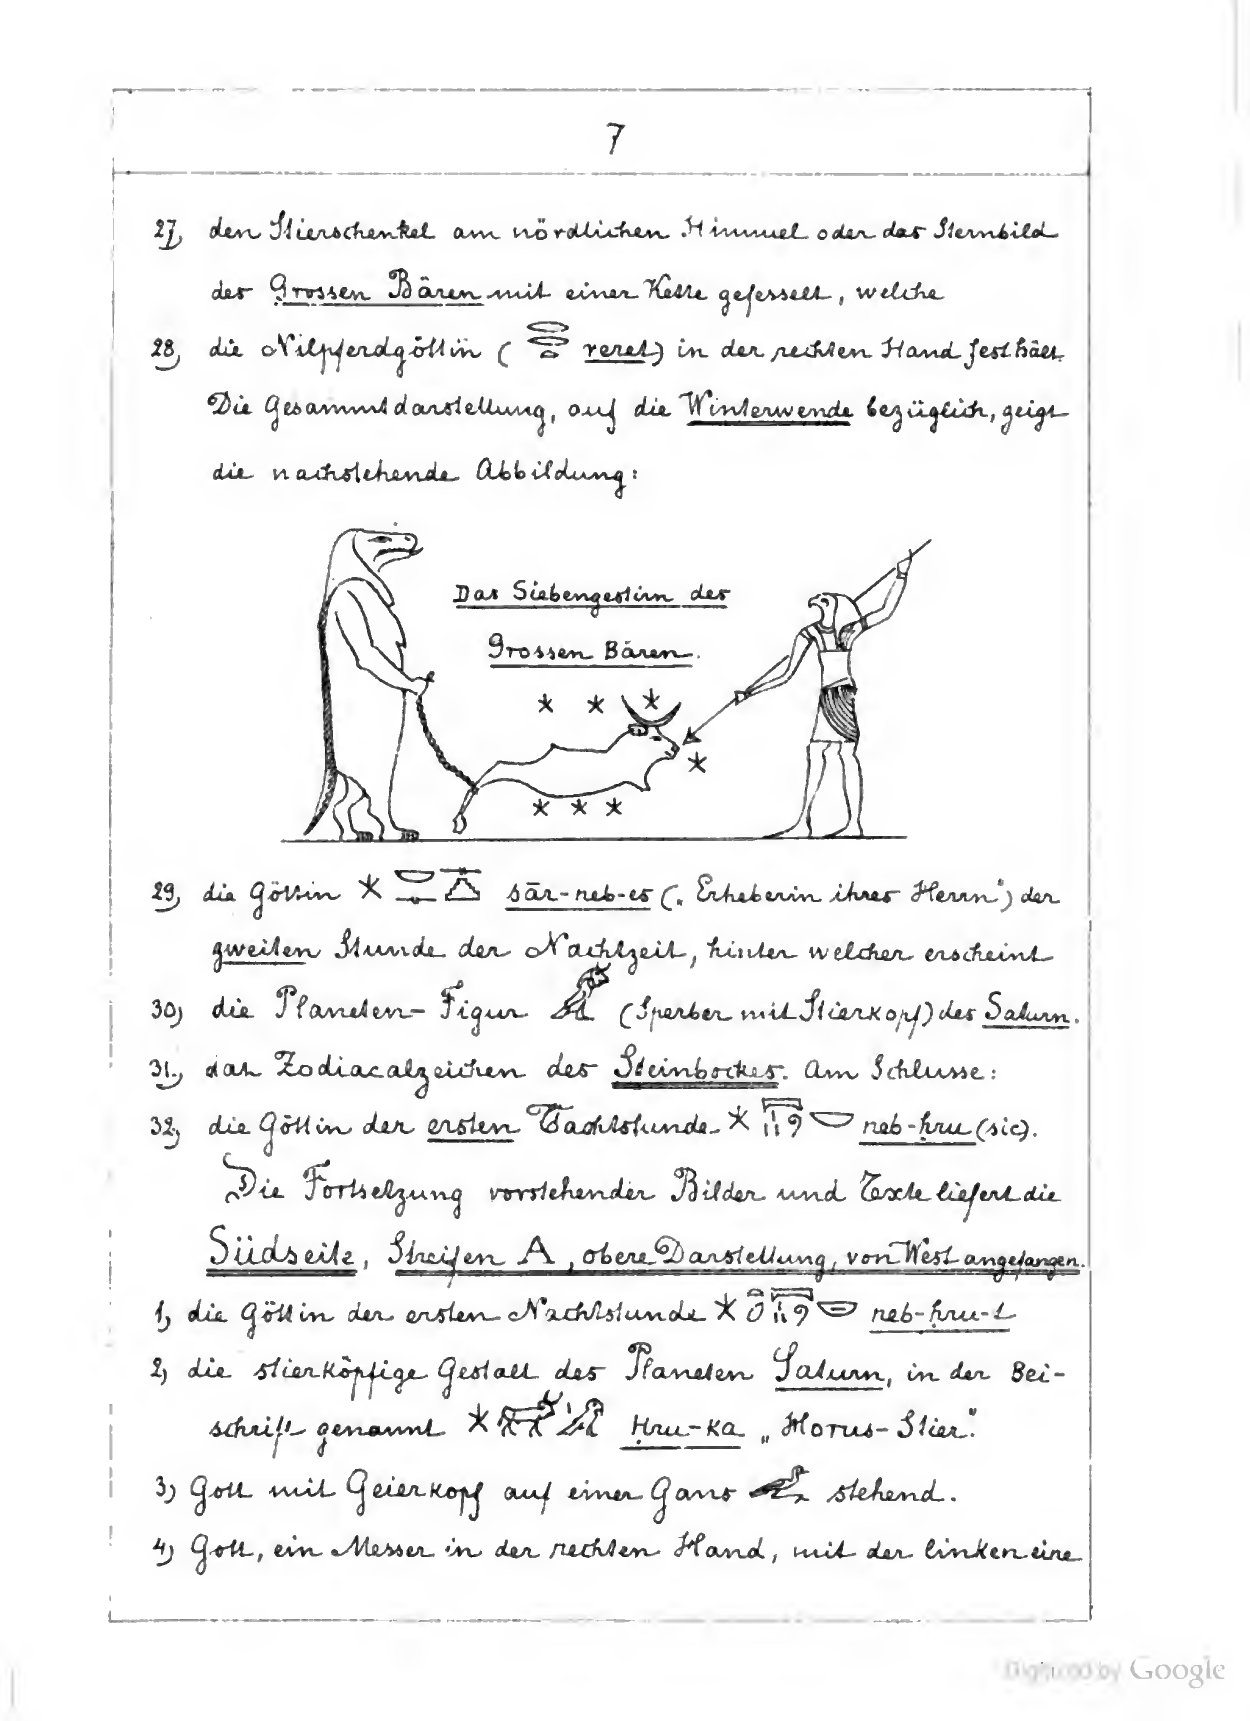 7
27, den Stierschenkel am nördlichen Himmel oder das Sternbild
des Grossen Bären mit einer Kette gefesselt, welche
28, die Nilpferdgöttin ( reret) in der rechten Hand festhält.
Die Gesammtdarstellung, auf die Winterwende bezüglich, zeigt
die nachstehende Abbildung:
Das Siebengestirn des
Grossen Bären.
29, die Göttin sār-neb-es („Erheberin ihres Herrn") der
zweiten Stunde der Nachtzeit, hinter welcher erscheint
30, die Planeten-Figur (Sperber mit Stierkopf) des Saturn.
31., das Zodiacalzeichen des Steinbockes. Am Schlusse:
32, die Göttin der ersten Nachtstunde neb-ḥru (sic).
Die Fortsetzung vorstehender Bilder und Texte liefert die
Südseite, Streifen A, obere Darstellung, von West angefangen.
1, die Göttin der ersten Nachtstunde neb-ḥru-t
2, die stierköpfige Gestalt des Planeten Saturn, in der Bei-
schrift genannt Ḥru-ka „Horus-Stier".
3, Gott mit Geierkopf auf einer Gans stehend.
4, Gott, ein Messer in der rechten Hand, mit der linken eine
Digitized by Google